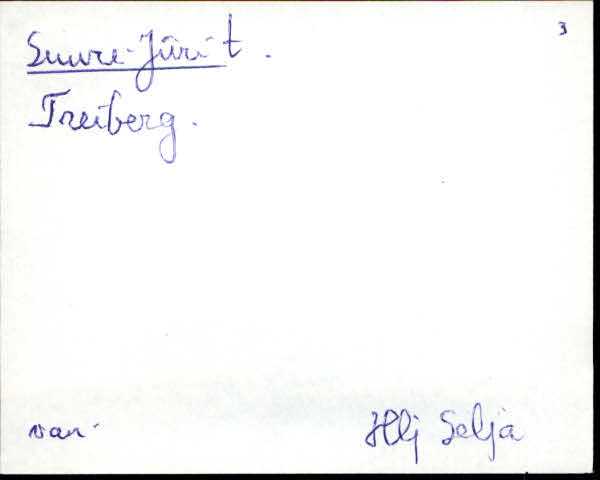 3
Suure-Jüri t.
Treiberg.
van. Hlj Selja